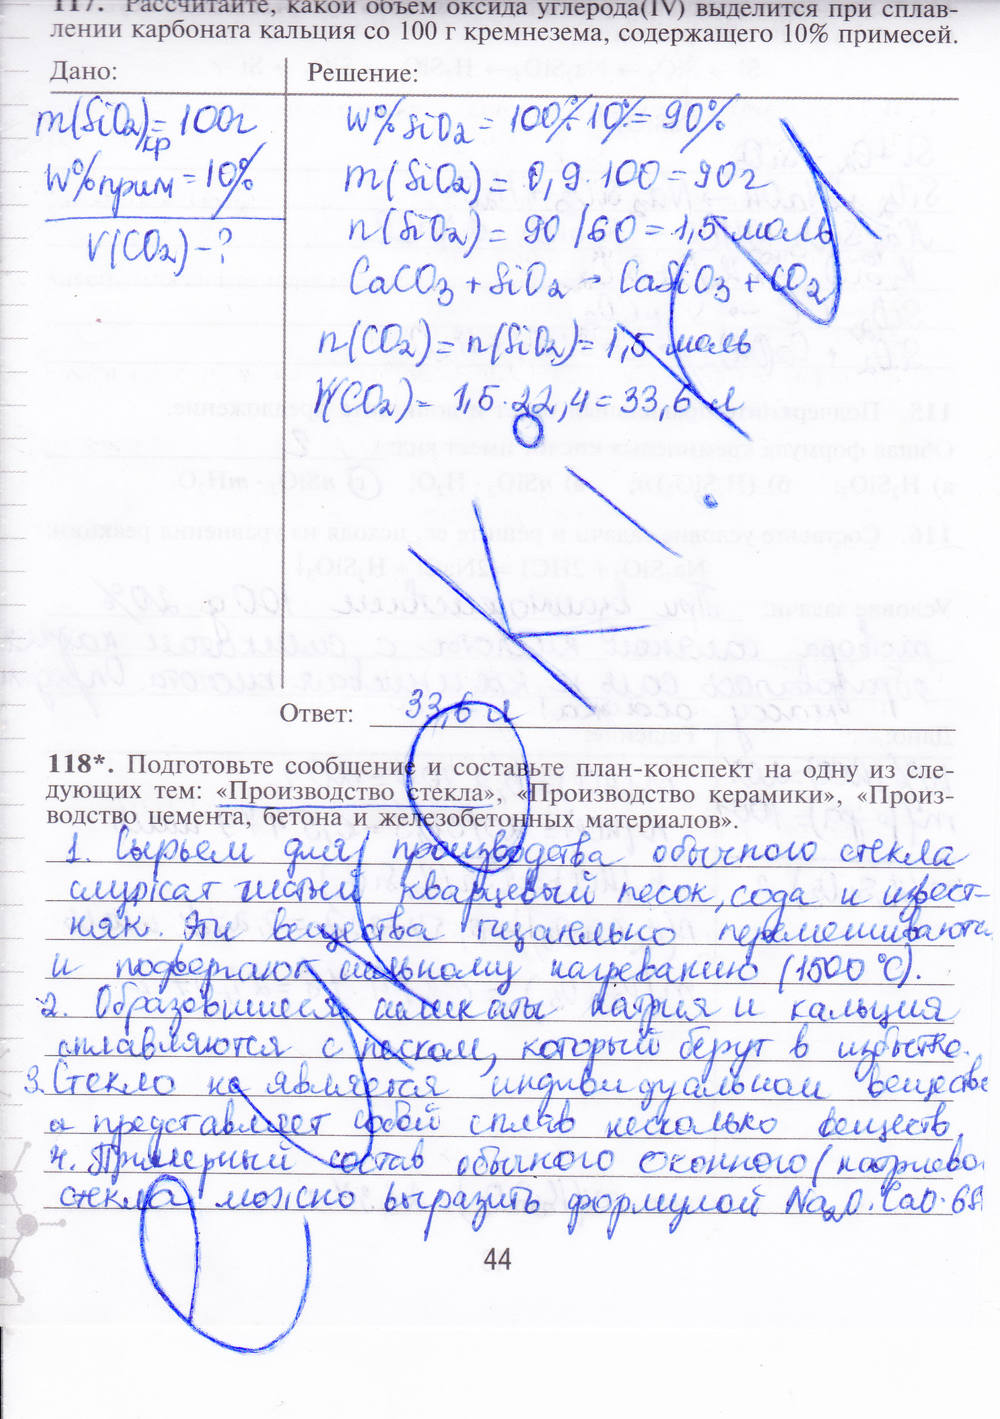 117. Рассчитайте, какой объем оксида углерода(IV) выделится при сплав-
лении карбоната кальция со 100 г кремнезема, содержащего 10% примесей.
Дано:
Решение:
m(SiO2)кр = 100г
W%прим = 10%
V(CO2) - ?
W% SiO2 = 100% - 10% = 90%
m(SiO2) = 0,9 · 100 = 90г
n(SiO2) = 90/60 = 1,5 моль
CaCO3 + SiO2 → CaSiO3 + CO2
n(CO2) = n(SiO2) = 1,5 моль
V(CO2) = 1,5 · 22,4 = 33,6 л
Ответ: 33,6 л
118*. Подготовьте сообщение и составьте план-конспект на одну из сле-
дующих тем: «Производство стекла», «Производство керамики», «Произ-
водство цемента, бетона и железобетонных материалов».
1. Сырьем для производства обычного стекла
служат чистый кварцевый песок, сода и извест-
няк. Эти вещества тщательно перемешивают
и подвергают сильному нагреванию (1500°C).
2. Образовшиеся силикаты натрия и кальция
сплавляются с песком, который берут в избытке.
3. Стекло не является индивидуальном веществе
а представляет собой сплав несколько веществ.
4. Примерный состав обычного оконного (натриево
стекла можно выразить формулой Na2O·CaO·6S
44